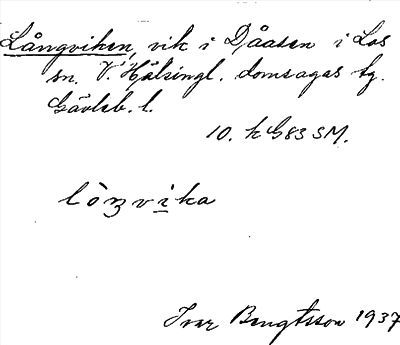 Långviken, vik i Djåasen i Los
sn. V. Hälsingl. domsagas tg.
Gävleb. l.
10. k G83 SM.
lòŋvika
Ivar Bengtsson 1937